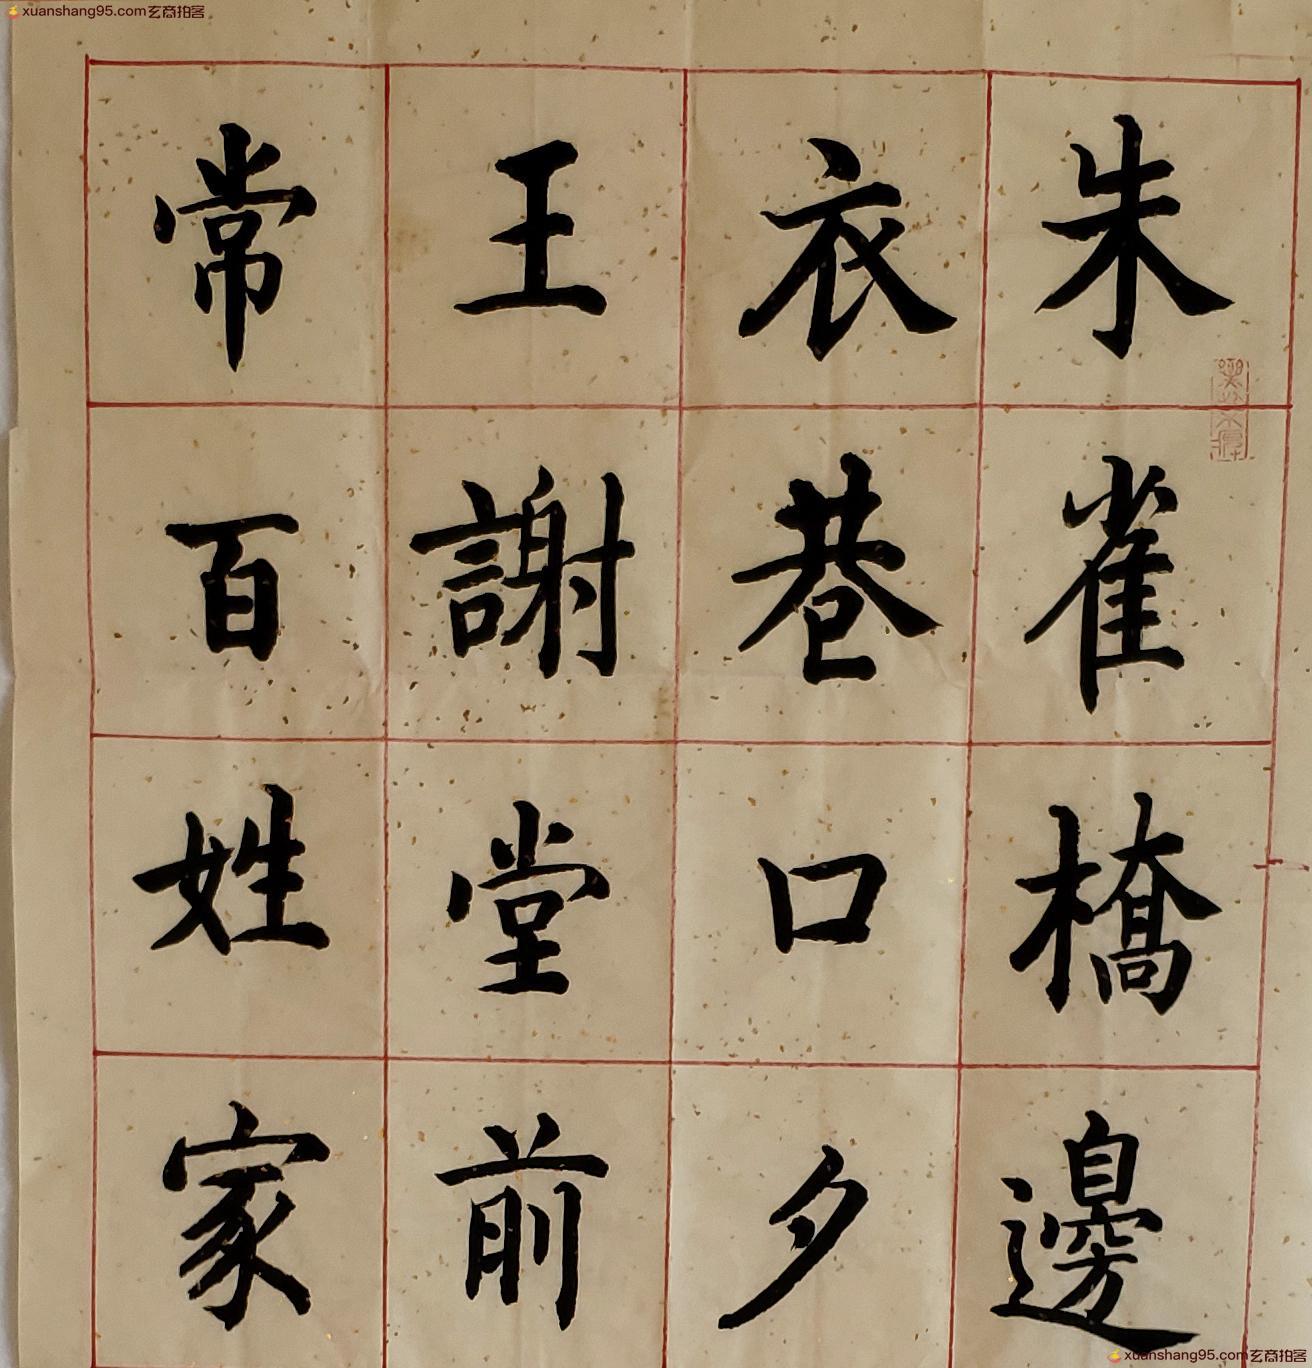 xuanshang95.com玄商拍客
朱雀橋邊
衣巷口夕
王謝堂前
常百姓家
xuanshang95.com玄商拍客